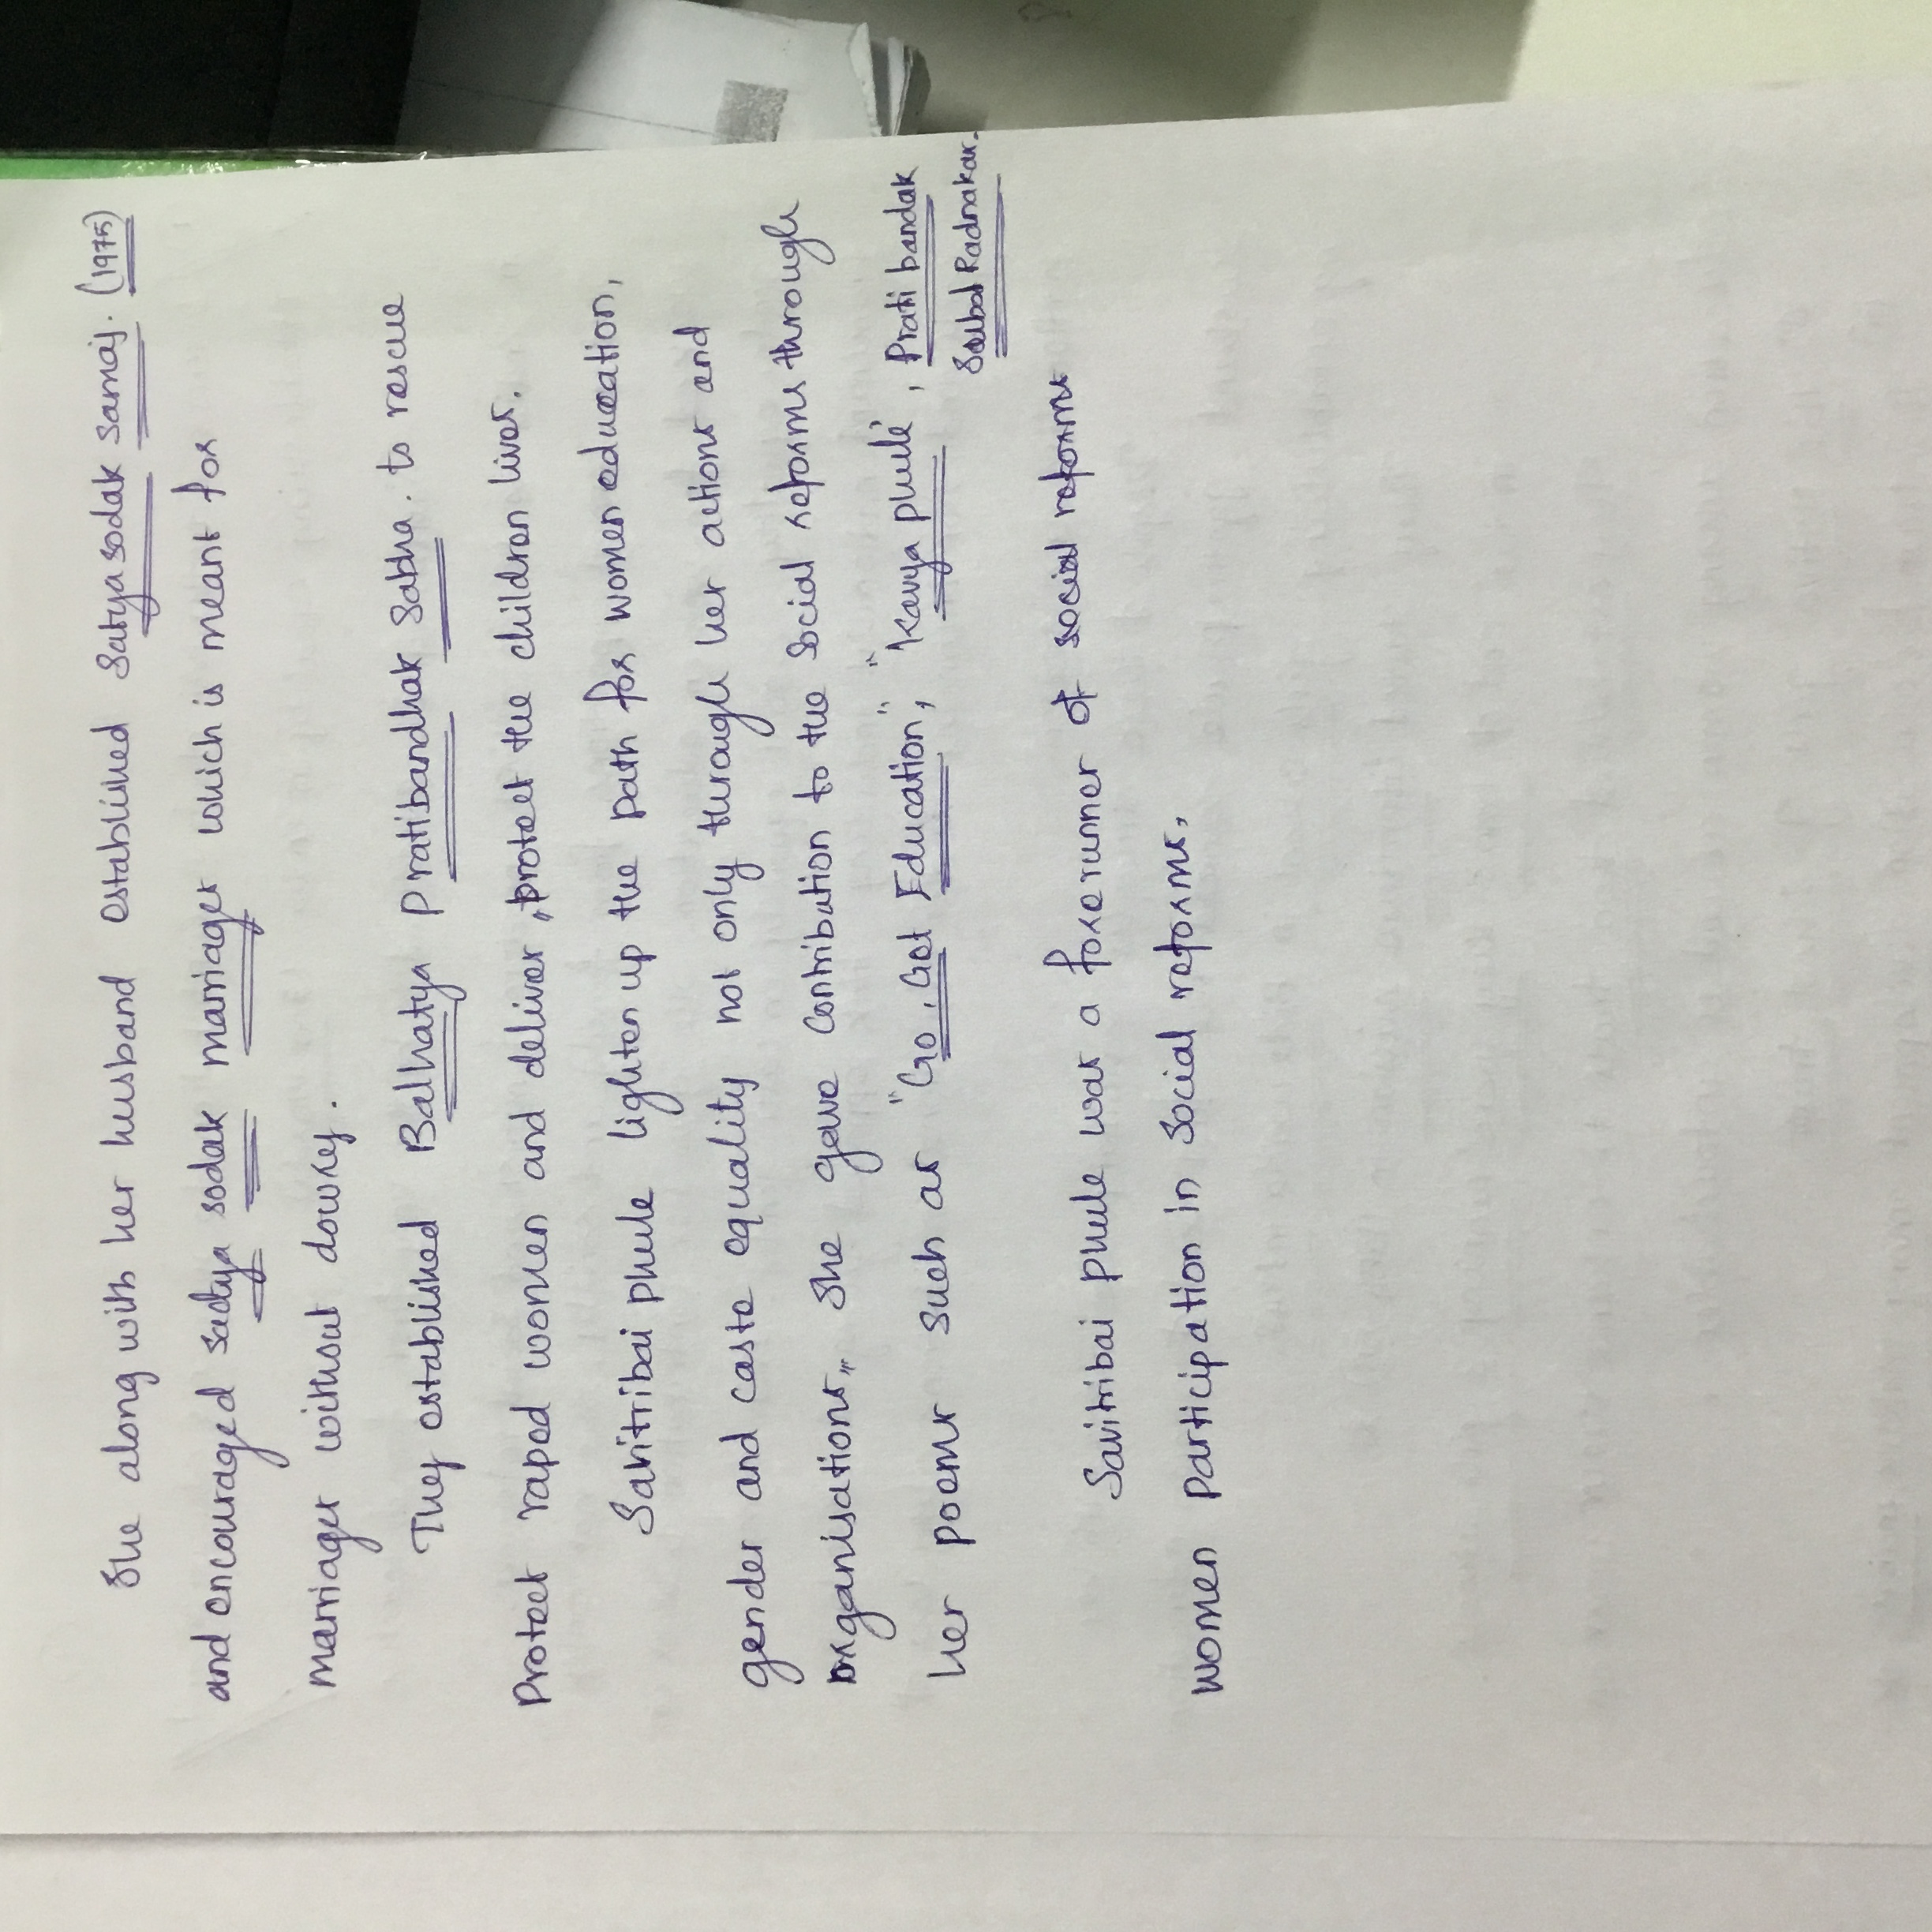 She along with her husband established Satyasodak Samaj. (1975)
and encouraged satya sodak marriages which is meant for
marriages without dowry.
They established Balhatya Pratibandhak Sabha. to rescue
Protect raped women and deliver, protect the children lives.
Savitribai phule lighten up the path for women education,
gender and caste equality not only through her actions and
organisations,, She gave contribution to the Social reforms through
her poems such as "Go, Get Education", "Kavya phule", Prati bandak
Subod Radnakar.
Savitribai phule was a forerunner of social reforms
women Participation in Social reforms.